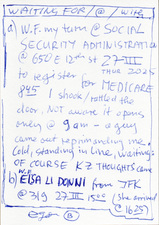 WAITING FOR / @ / with
a) W.F. my term @ SOCIAL
SECURITY ADMINISTRATION
@ 650 E 12th St 27 III
THUR 2025
to register for MEDICARE
845 I shook / rattled the
door. NOT aware it opens
only @ 9 am - a guy
came out reprimanding me.
Cold, standing in line, waiting
OF COURSE KZ thoughts came
b) W.F. ELSA LI DONNI from JFK
@ 319 27 III 1500 (she arrived
@ 1625)
B